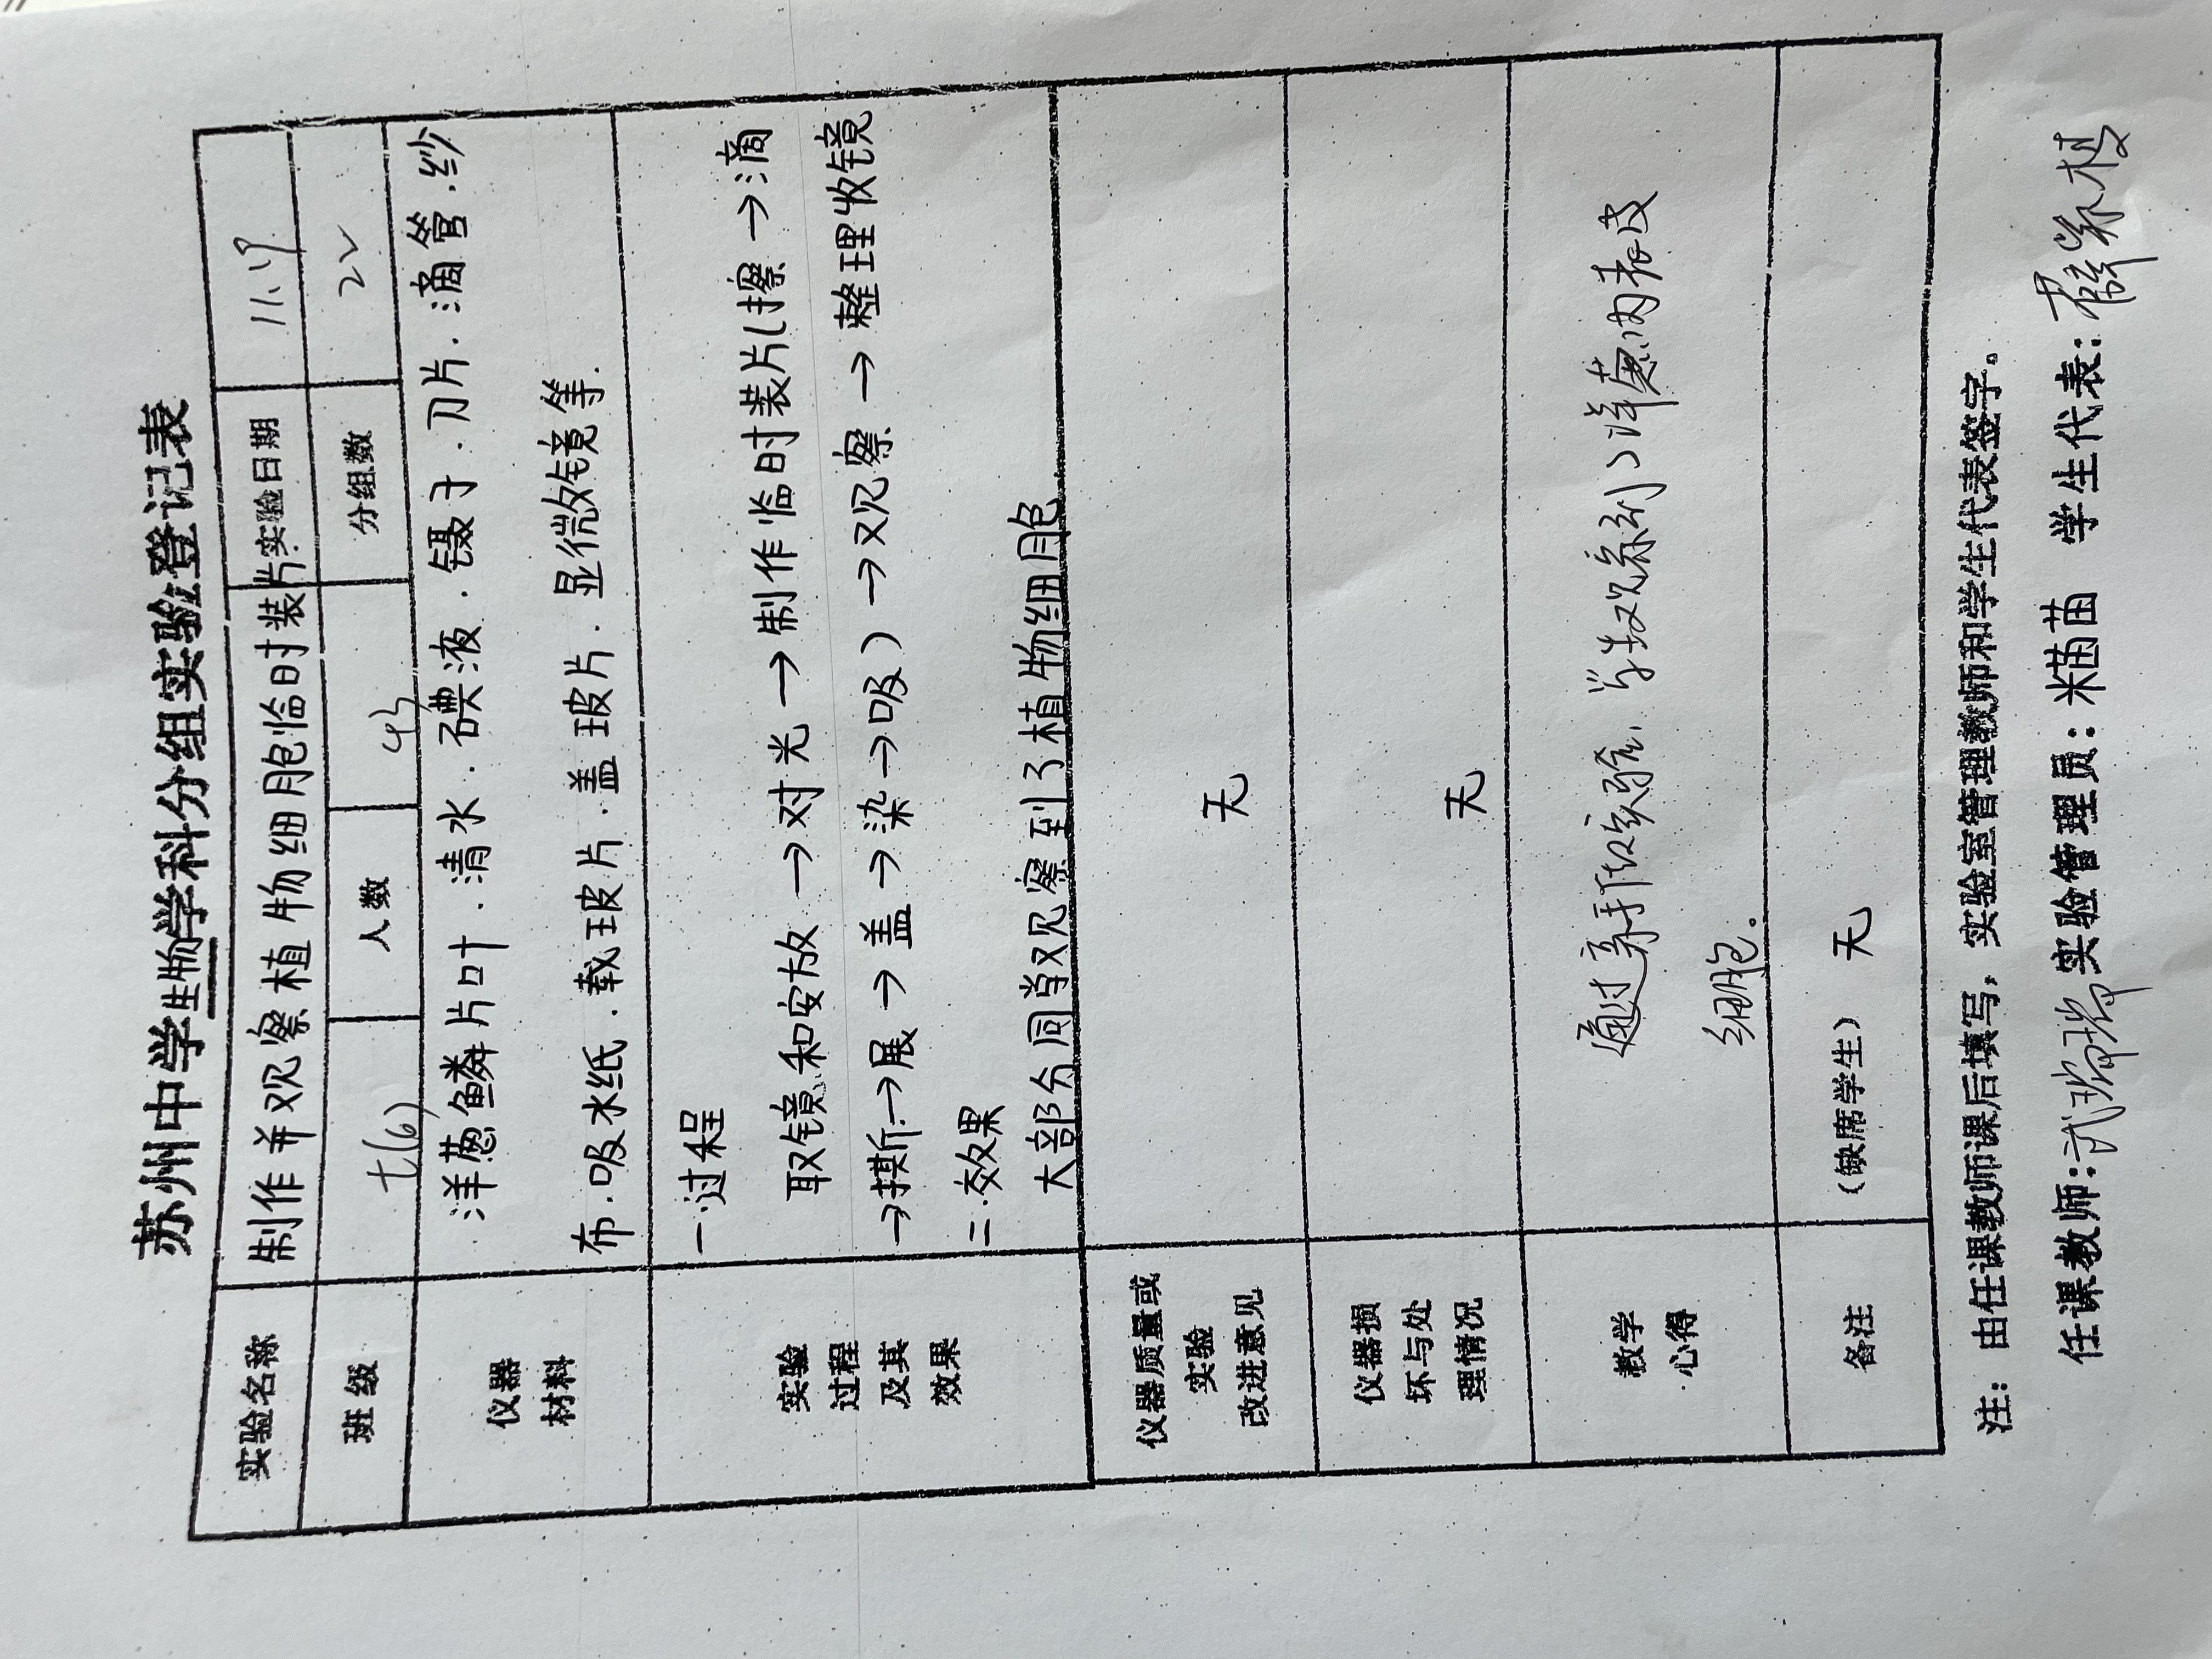 苏州中学生物学科分组实验登记表
实验名称 制作并观察植物细胞临时装片 实验日期 11.19
班级 七(6) 人数 43 分组数 22
仪器
材料
洋葱鳞片叶.清水.碘液.镊子.刀片.滴管.纱
布.吸水纸.载玻片.盖玻片.显微镜等.
实验
过程
及其
效果
一.过程
取镜和安放→对光→制作临时装片(擦→滴
→撕→展→盖→染→吸)→观察→整理收镜
二.效果
大部分同学观察到了植物细胞
仪器质量或
实验
改进意见
无
仪器损
坏与处
理情况
无
教学
心得
通过亲手做实验,学生观察到了洋葱内表皮
细胞.
备注
(缺席学生) 无
注：由任课教师课后填写，实验室管理教师和学生代表签字。
任课教师: 实验管理员：米苗苗 学生代表: